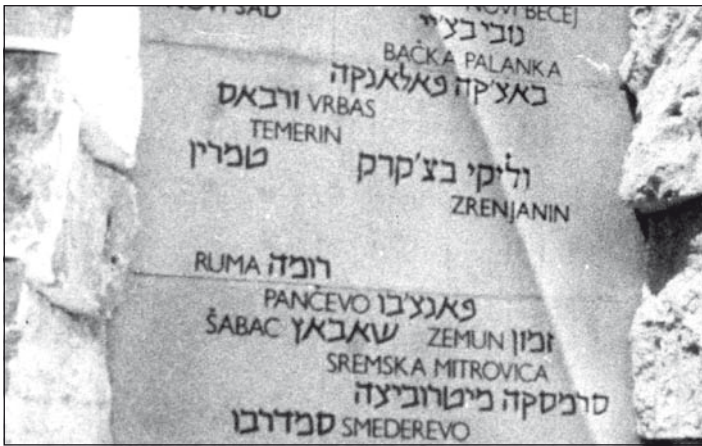 NOVI SAD
NOVI BEČEJ
נובי בצ'יי
BAČKA PALANKA
באצ'קה פאלאנקה
ורבאס VRBAS
TEMERIN
טמרין
וליקי בצ'קרק
ZRENJANIN
RUMA רומה
PANČEVO פאנצ'בו
ŠABAC שאבאץ
ZEMUN זמון
SREMSKA MITROVICA
סרמסקה מיטרוביצה
סמדרבו SMEDEREVO